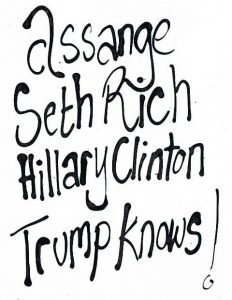 assange
Seth Rich
Hillary Clinton
Trump Knows!